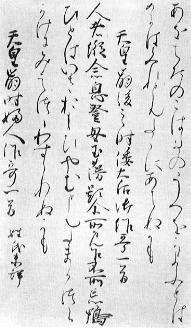 あをはたのこはたのうへをかよふとは
めにはみれともたゝにあはぬかも
天皇崩後之時倭大后御作哥一首
人者縦念息登母玉蘰影尓所見乍不所忘鴨
ひとはいさおもひやむともたまかつら
かけにみえつゝわすられぬかも
天皇崩時婦人作哥一首 姓氏未詳